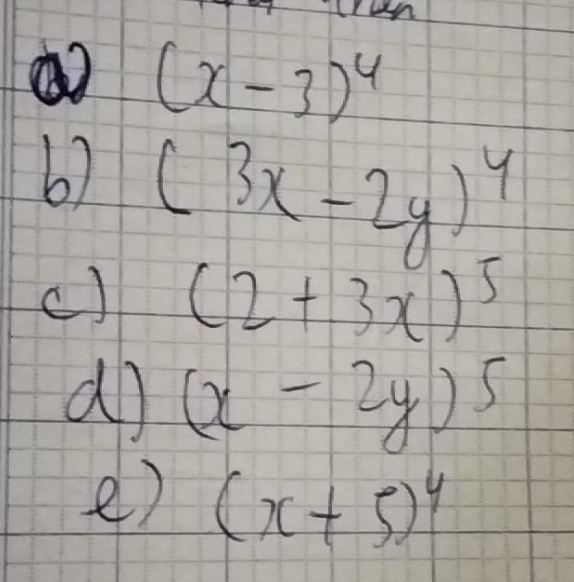 a) (x - 3)^4
b) (3x - 2y)^4
c) (2 + 3x)^5
d) (x - 2y)^5
e) (x + 5)^4